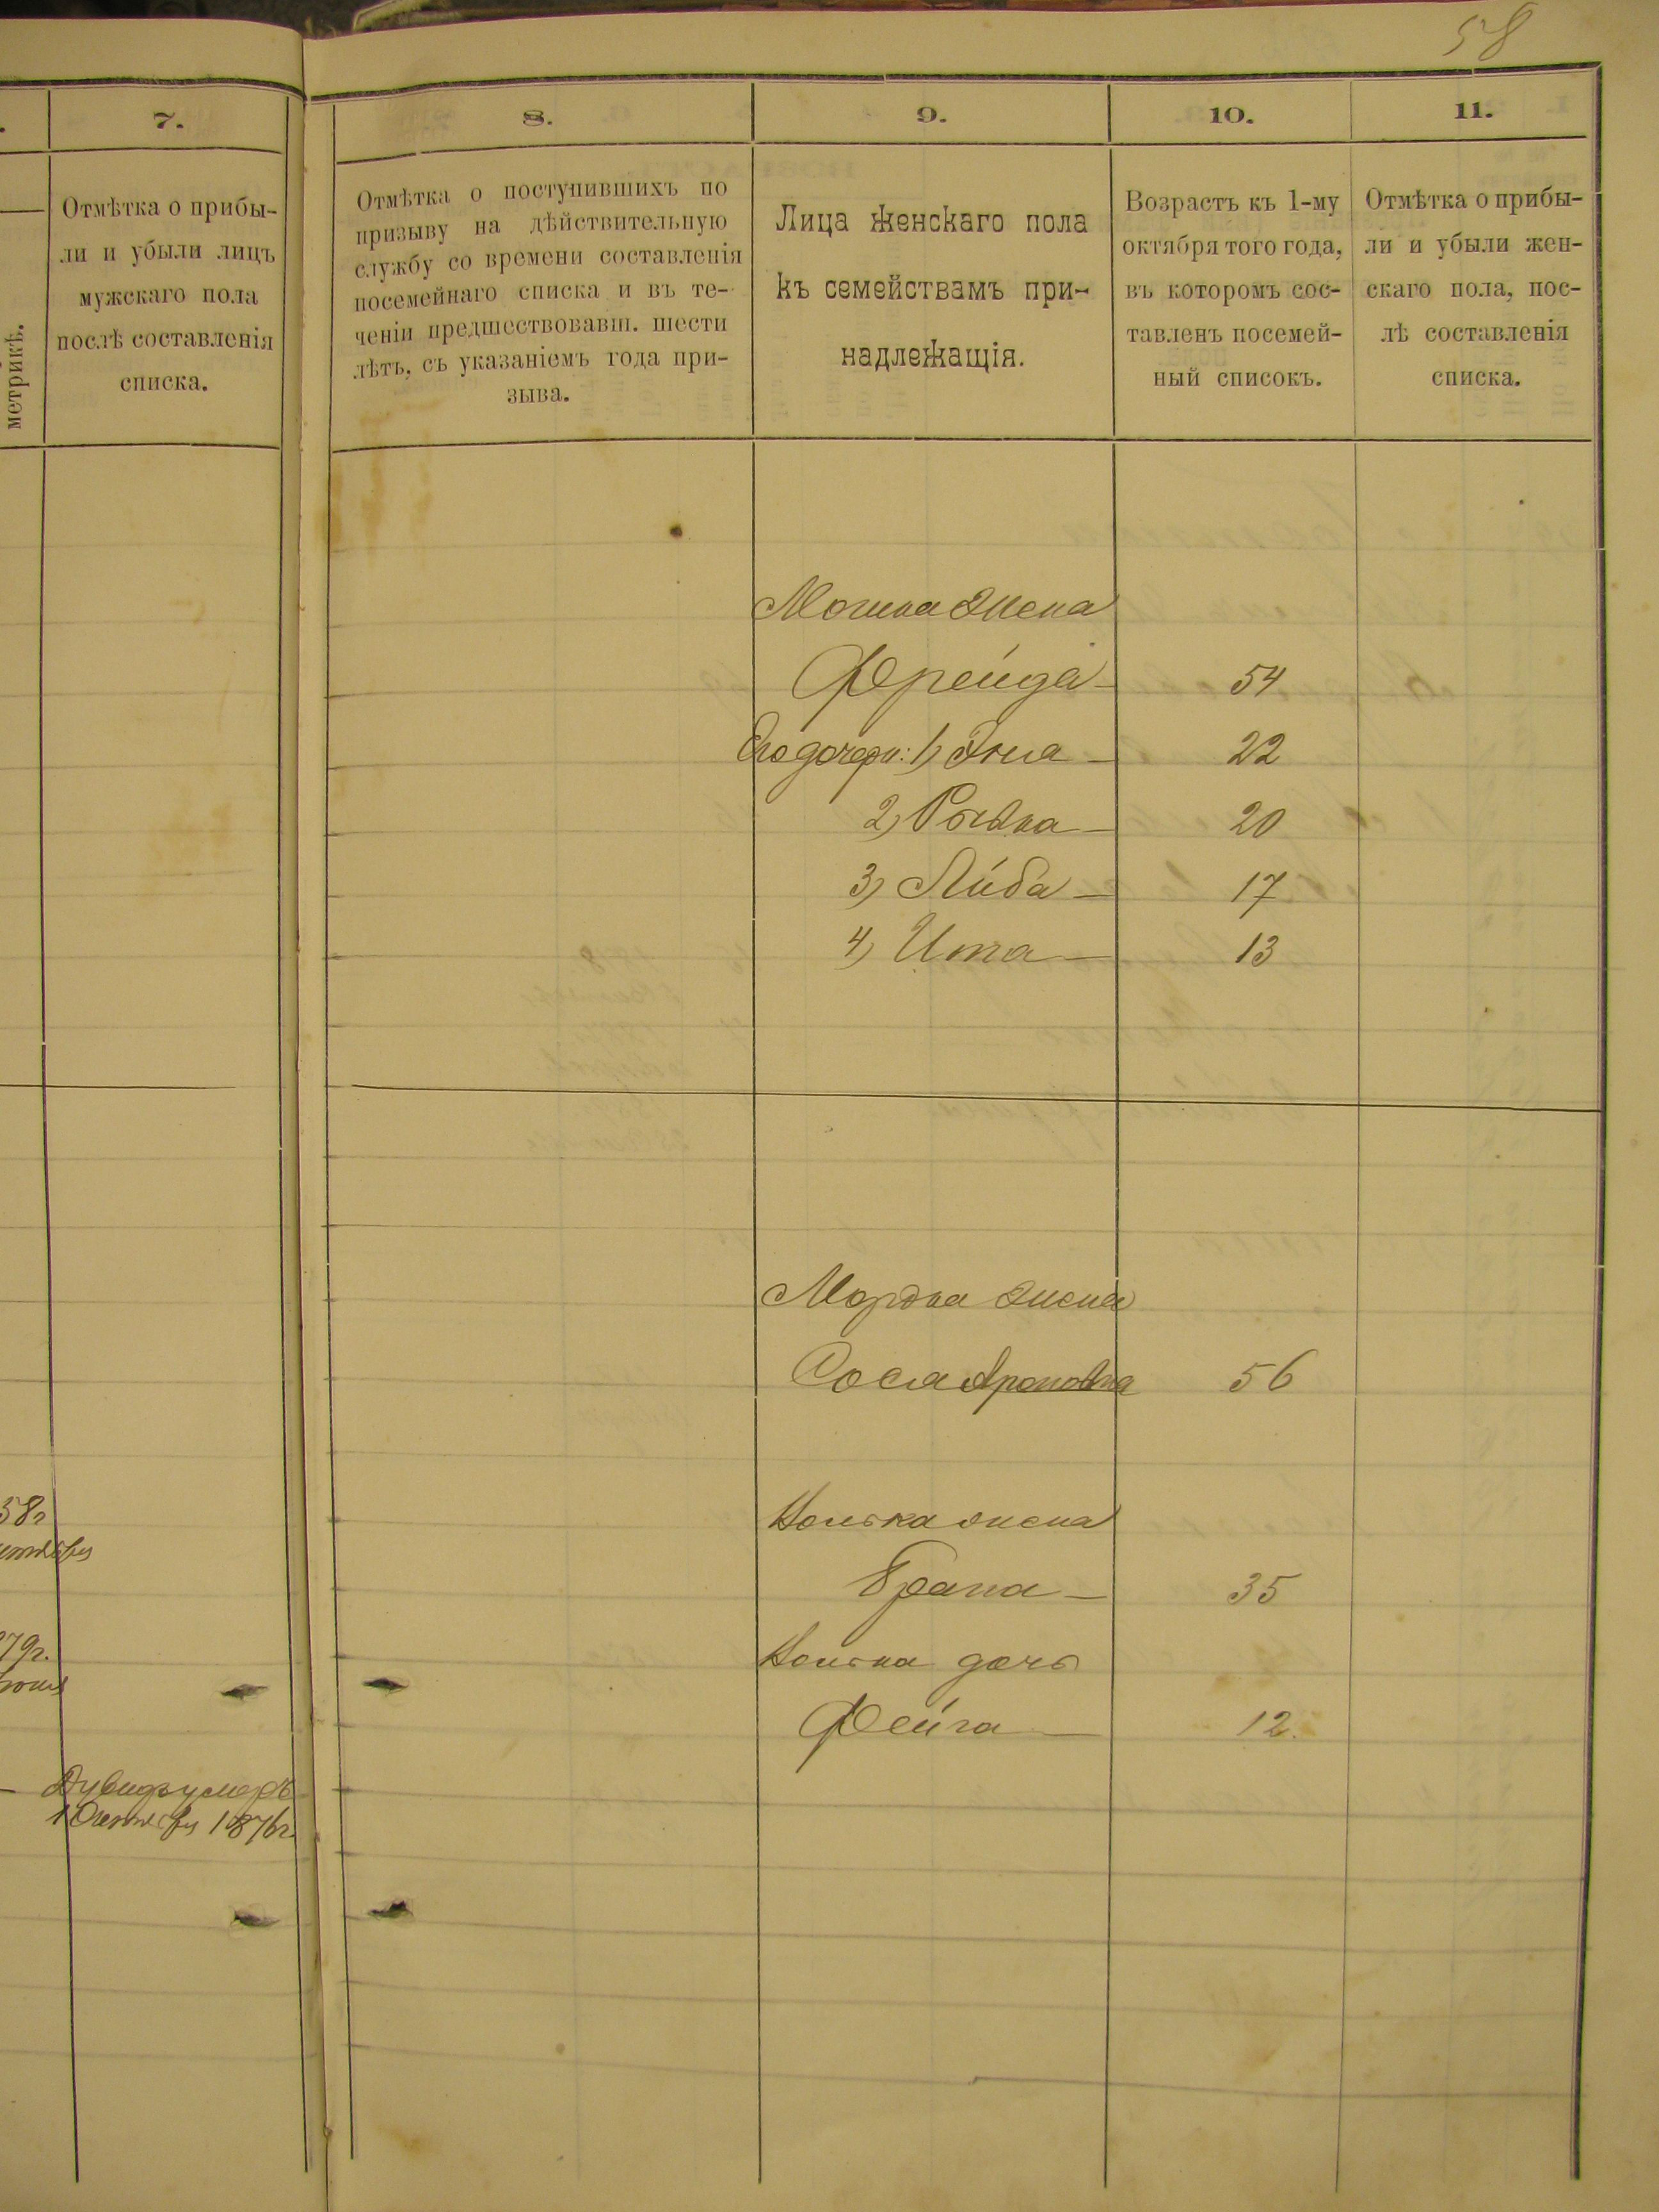 58
7.
Отмѣтка о прибы-
ли и убыли лицъ
мужскаго пола
послѣ составленія
списка.
метрикѣ.
58г
79г.
умеръ
1876г.
8.
Отмѣтка о поступившихъ по
призыву на дѣйствительную
службу со времени составленія
посемейнаго списка и въ те-
ченіи предшествовавш. шести
лѣтъ, съ указаніемъ года при-
зыва.
9.
Лица женскаго пола
къ семействамъ при-
надлежащія.
10.
Возрастъ къ 1-му
октября того года,
въ которомъ сос-
тавленъ посемей-
ный списокъ.
11.
Отмѣтка о прибы-
ли и убыли жен-
скаго пола, пос-
лѣ составленія
списка.
Мошка жена
Фрейда — 54
Его дочери: 1) — 22
2) Рывка — 20
3) Либа — 17
4) Ита — 13
Мордка жена
Сося Ароновна 56
жена
Брана — 35
дочь
Фейга — 12.